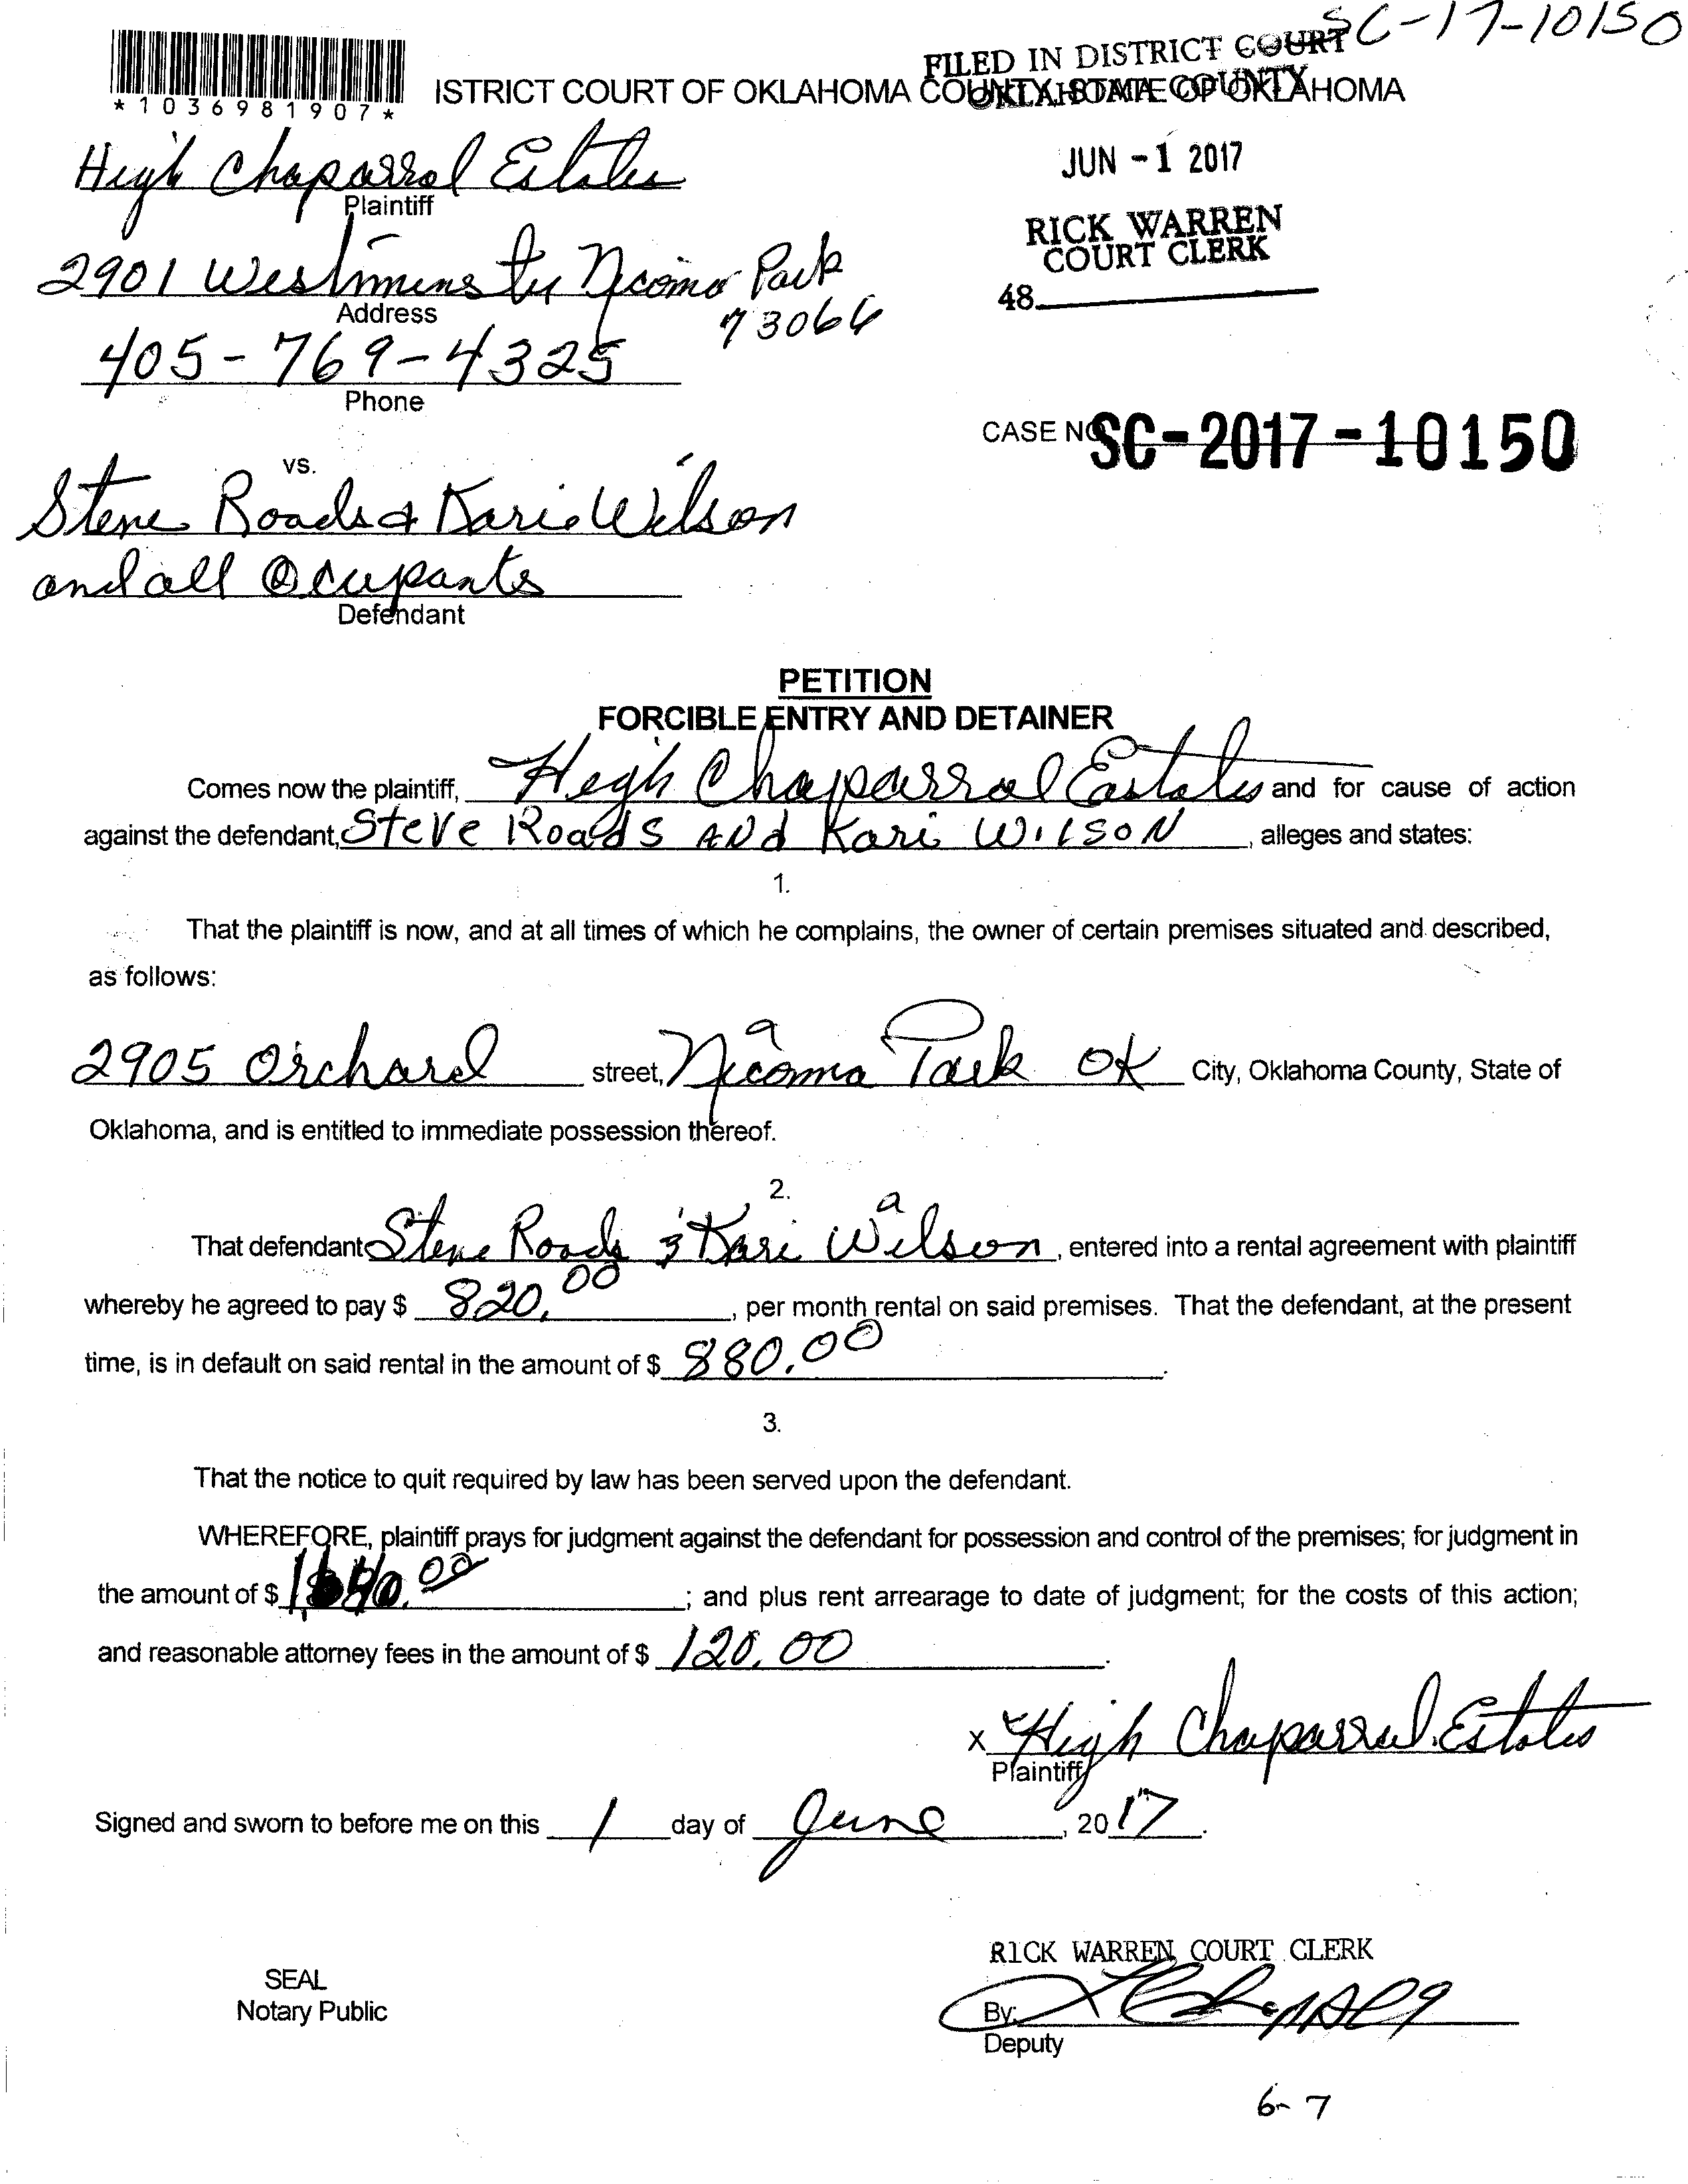 SC-17-10150
FILED IN DISTRICT COURT
OKLAHOMA COUNTY
ISTRICT COURT OF OKLAHOMA COUNTY, STATE OF OKLAHOMA
*1036981907*
JUN -1 2017
High Chaparral Estates
Plaintiff
RICK WARREN
COURT CLERK
2901 Westminster Nicoma Park
73066
Address
48
405-769-4325
Phone
CASE NO. SC-2017-10150
vs.
Steve Roads & Kari Wilson
and all Ocupants
Defendant
PETITION
FORCIBLE ENTRY AND DETAINER
Comes now the plaintiff, High Chaparral Eastates and for cause of action
against the defendant, Steve Roads and Kari Wilson, alleges and states:
1.
That the plaintiff is now, and at all times of which he complains, the owner of certain premises situated and described,
as follows:
2905 Orchard street, Nicoma Park OK City, Oklahoma County, State of
Oklahoma, and is entitled to immediate possession thereof.
2.
That defendant Steve Roads & Kari Wilson, entered into a rental agreement with plaintiff
whereby he agreed to pay $ 820.00, per month rental on said premises. That the defendant, at the present
time, is in default on said rental in the amount of $ 880.00.
3.
That the notice to quit required by law has been served upon the defendant.
WHEREFORE, plaintiff prays for judgment against the defendant for possession and control of the premises; for judgment in
the amount of $ ; and plus rent arrearage to date of judgment; for the costs of this action;
and reasonable attorney fees in the amount of $ 120.00.
x High Chaparral Estates
Plaintiff
Signed and sworn to before me on this 1 day of June, 2017.
RICK WARREN, COURT CLERK
SEAL
Notary Public
By:
Deputy
6-7